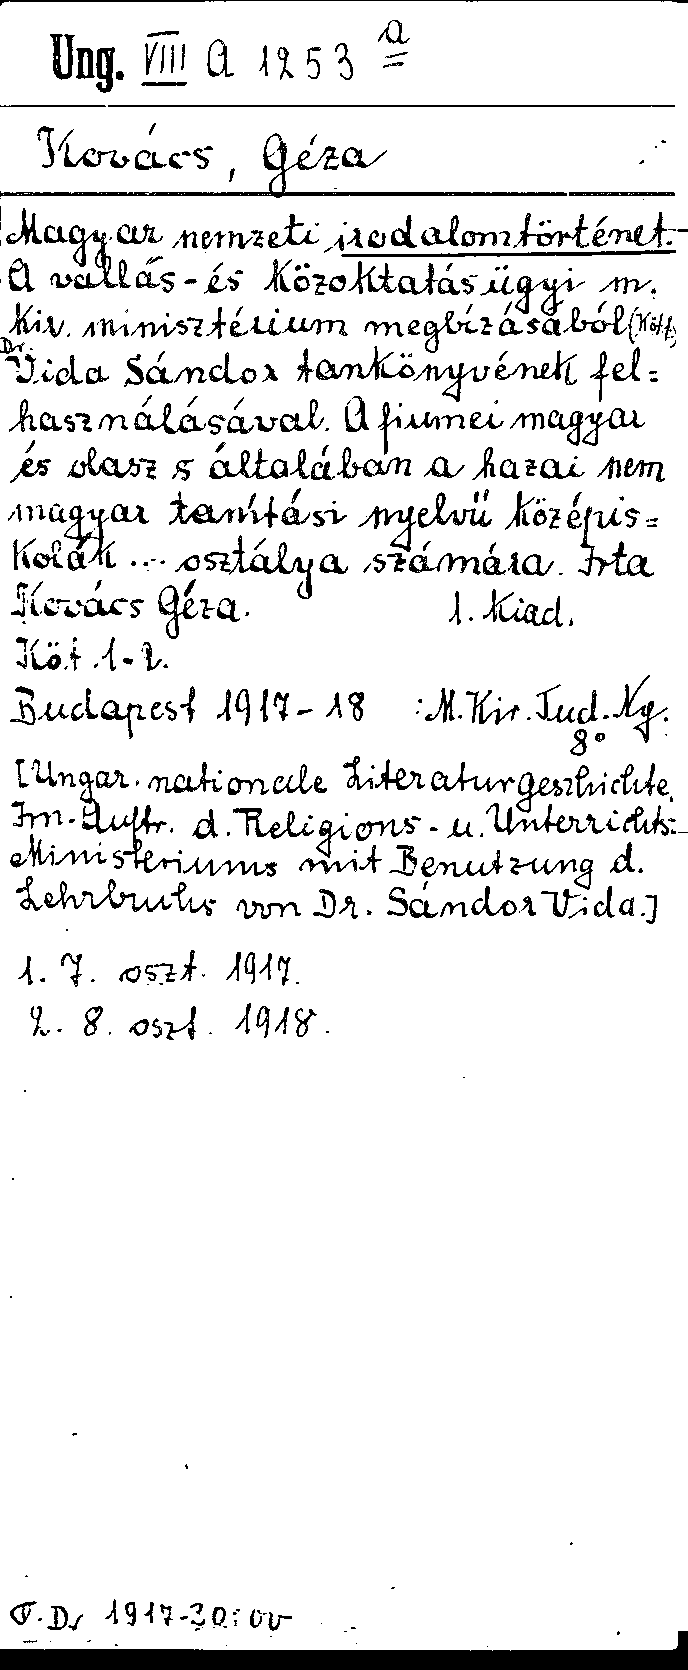 Ung. VIII A 1253 a
Kovács, Géza
Magyar nemzeti irodalomtörténet.
A vallás- és közoktatásügyi m.
kir. minisztérium megbízásából (Köt 1)
Dr.
Vida Sándor tankönyvének fel=
használásával. A fiumei magyar
és olasz s általában a hazai nem
magyar tanítási nyelvű középis=
kolák ... osztálya számára. Irta
Kovács Géza. 1. Kiad.
Köt 1-2.
Budapest 1917-18 : M. Kir. Tud. Ny.
8°
[Ungar. nationale Literaturgeschichte.
Im Auftr. d. Religions- u. Unterrichts-
Ministeriums mit Benutzung d.
Lehrbuchs von Dr. Sándor Vida.]
1. 7. oszt. 1917.
2. 8. oszt. 1918.
1917